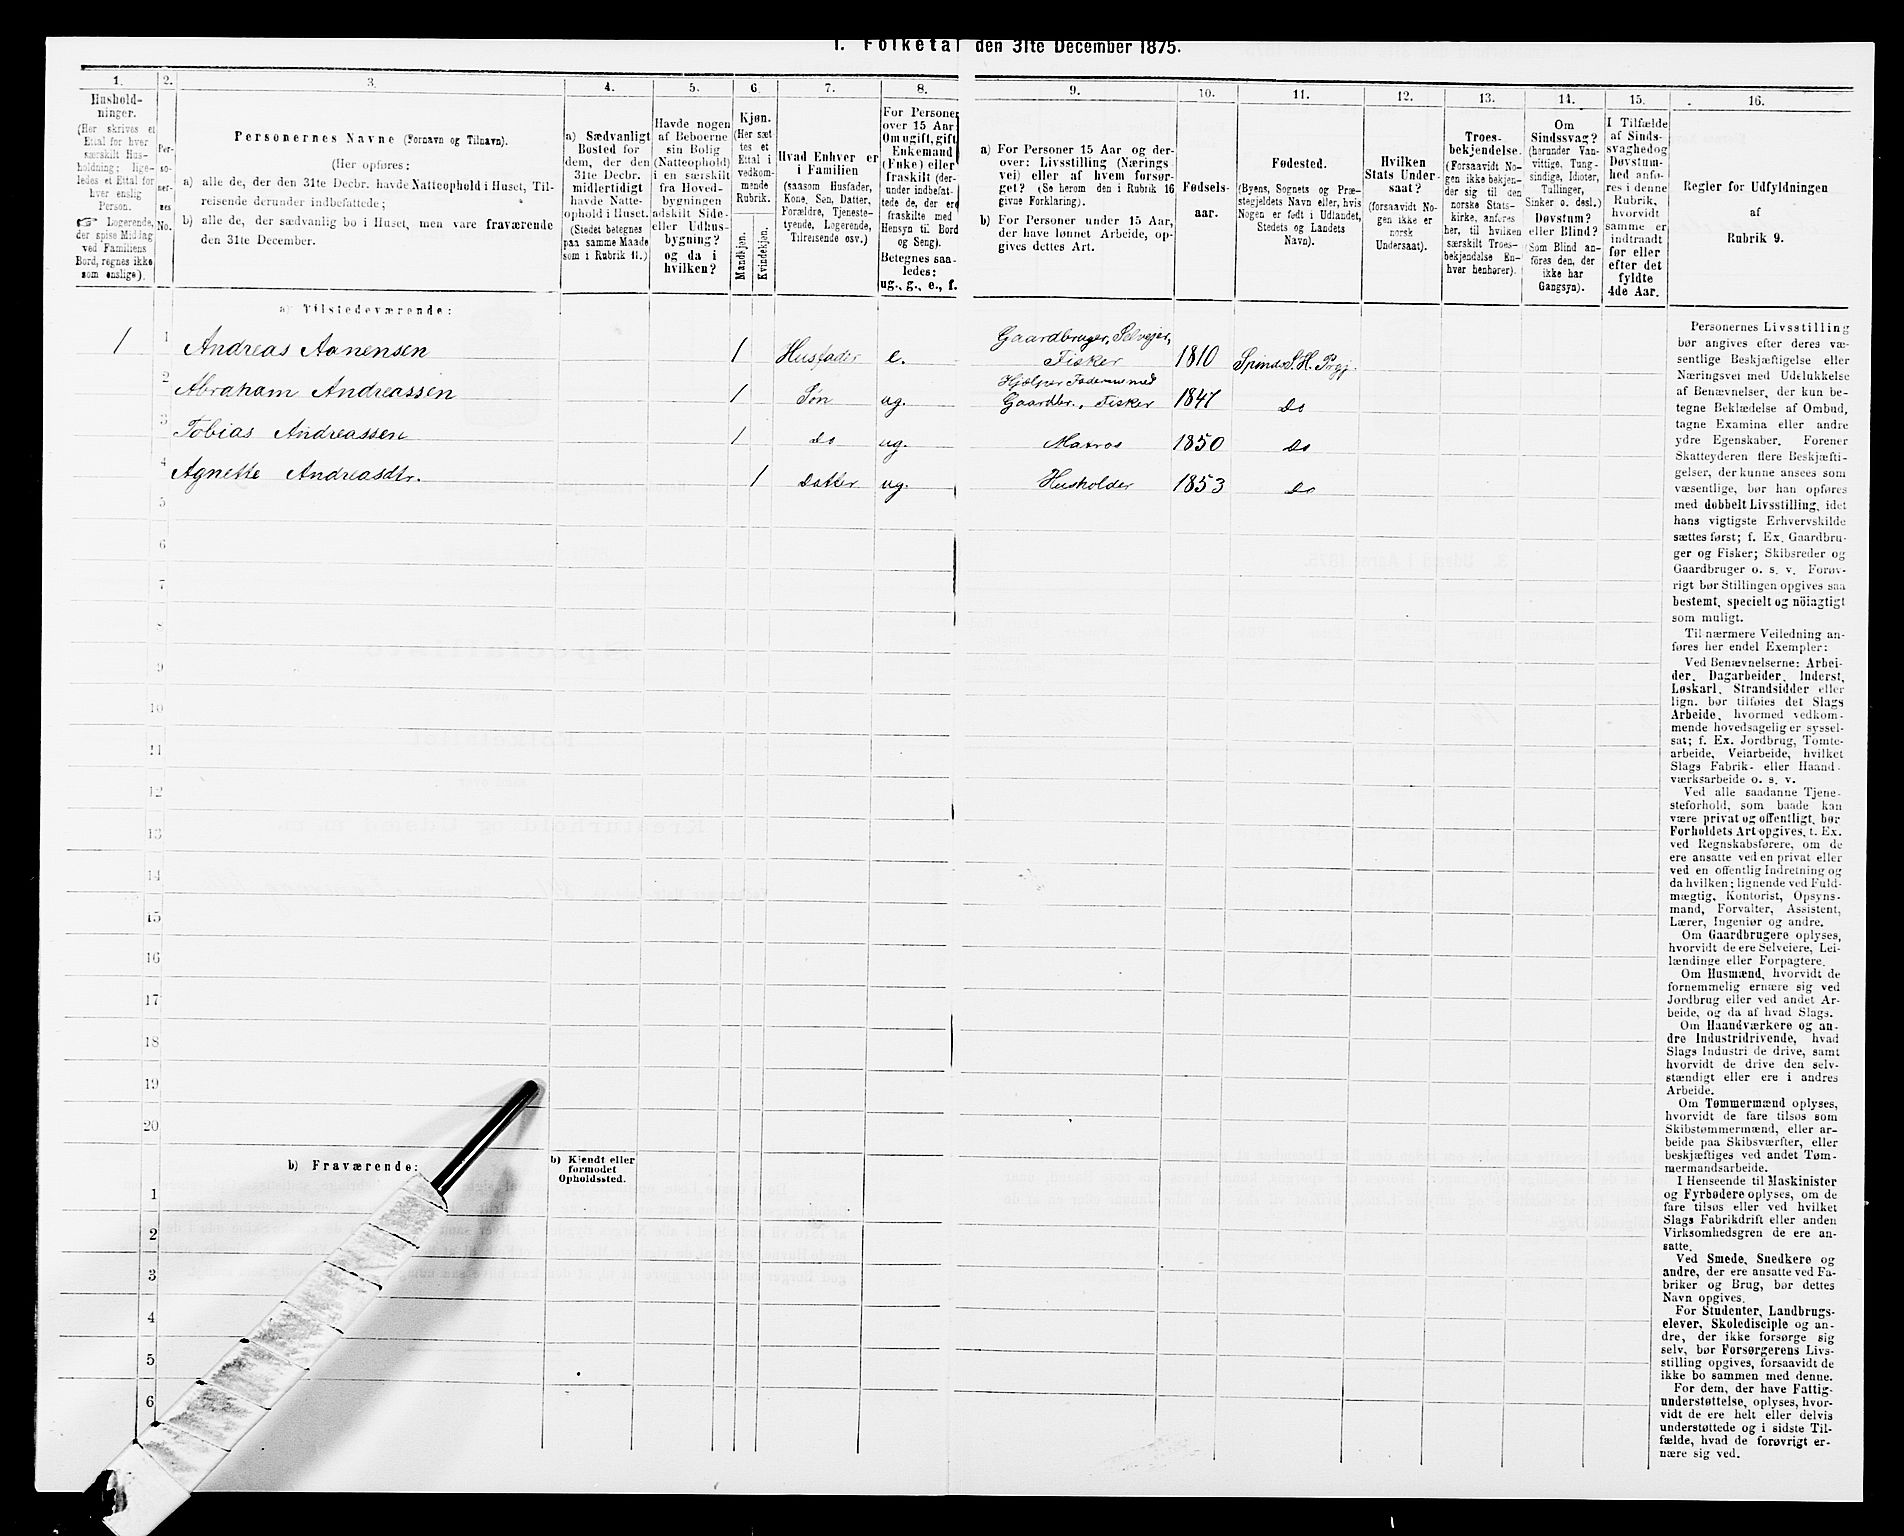 I. Folketal den 31te December 1875.
1.
2.
3.
4.
5.
6.
7.
8.
9.
10.
11.
12.
13.
14.
15.
16.
Hushold-
ninger.
(Her skrives et
Ettal for hver
særskilt Hus-
holdning; lige-
ledes et Ettal for
hver enslig
Person.
☞ Logerende,
der spise Middag
ved Familiens
Bord, regnes ikke
som enslige).
Per-
so-
ner-
nes
No.
Personernes Navne (Fornavn og Tilnavn).
(Her opføres:
a) alle de, der den 31te Decbr. havde Natteophold i Huset, Til-
reisende derunder indbefattede;
b) alle de, der sædvanlig bo i Huset, men vare fraværende
den 31te December.
a) Sædvanligt
Bosted for
dem, der den
31te Decbr.
midlertidigt
havde Natte-
ophold i Huset.
(Stedet betegnes
paa samme Maade
som i Rubrik 11.)
Havde nogen
af Beboerne
sin Bolig
(Natteophold)
i en særskilt
fra Hoved-
bygningen
adskilt Side-
eller Udhus-
bygning?
og da i
hvilken?
Kjøn.
(Her sæt
tes et
Ettal i
vedkom-
mende
Rubrik.
Mandkjøn.
Kvindekjøn.
Hvad Enhver er
i Familien
(saasom Husfader,
Kone, Søn, Datter,
Forældre, Tjeneste-
tyende, Logerende,
Tilreisende osv.)
For Personer
over 15 Aar
Om ugift, gift,
Enkemand
(Enke) eller
fraskilt (der-
under indbefat-
tede de, der ere
fraskilte med
Hensyn til Bord
og Seng).
Betegnes saa-
ledes:
ug., g., e., f.
a) For Personer 15 Aar og der-
over: Livsstilling (Nærings-
vei) eller af hvem forsør-
get? (Se herom den i Rubrik 16
givne Forklaring).
b) For Personer under 15 Aar,
der have lønnet Arbeide, op-
gives dettes Art.
Fødsels-
aar.
Fødested.
(Byens, Sognets og Præ-
stegjeldets Navn eller, hvis
Nogen er født i Udlandet,
Stedets og Landets
Navn).
Hvilken
Stats Under-
saat?
(forsaavidt No-
gen ikke er
norsk
Undersaat).
Troes-
bekjendelse.
(Forsaavidt No-
gen ikke bekjen-
der sig til den
norske Stats-
kirke, anføres
her, til hvilken
særskilt Troes-
bekjendelse En-
hver henhører).
Om
Sindssvag?
(herunder Van-
vittige, Tung-
sindige, Idioter,
Tullinger,
Sinker o. desl.)
Døvstum?
eller Blind?
(Som Blind an-
føres den, der
ikke har
Gangsyn).
I Tilfælde
af Sinds-
svaghed og
Døvstum-
hed anfø-
res i denne
Rubrik,
hvorvidt
samme er
indtraadt
før eller
efter det
fyldte
4de Aar.
Regler for Udfyldningen
af
Rubrik 9.
a) Tilstedeværende:
1 1 Andreas Aanensen 1 Husfader e. Gaardbruger, Selveier,
Fisker 1810 Spinds S. H. Prgj.
2 Abraham Andreassen 1 Søn ug. Hjælper Faderen med
Gaardbr., Fisker 1847 Do
3 Tobias Andreassen 1 Do ug. Matros 1850 Do
4 Agnette Andreasdtr. 1 Datter ug. Husholder 1853 Do
5
6
7
8
9
10
11
12
13
14
15
16
17
18
19
20
b) Fraværende:
b) Kjendt eller
formodet
Opholdssted.
1
2
3
4
5
6
Personernes Livsstilling
bør angives efter deres væ-
sentlige Beskjæftigelse eller
Næringsvei med Udelukkelse
af Benævnelser, der kun be-
tegne Beklædelse af Ombud,
tagne Examina eller andre
ydre Egenskaber. Forener
Skatteyderen flere Beskjæfti-
gelser, der kunne ansees som
væsentlige, bør han opføres
med dobbelt Livsstilling, idet
hans vigtigste Erhvervskilde
sættes først; f. Ex. Gaardbru-
ger og Fisker; Skibsreder og
Gaardbruger o. s. v. Forøv-
rigt bør Stillingen opgives saa
bestemt, specielt og nöiagtigt
som muligt.
Til nærmere Veiledning an-
føres her endel Exempler:
Ved Benævnelserne: Arbei-
der, Dagarbeider, Inderst,
Løskarl, Strandsidder eller
lign. bør tilføies det Slags
Arbeide, hvormed vedkom-
mende hovedsagelig er syssel-
sat; f. Ex. Jordbrug, Tomte-
arbeide, Veiarbeide, hvilket
Slags Fabrik- eller Haand-
værksarbeide o. s. v.
Ved alle saadanne Tjene-
steforhold, som baade kan
være privat og offentligt, bør
Forholdets Art opgives, t. Ex.
ved Regnskabsførere, om de
ere ansatte ved en privat eller
ved en offentlig Indretning og
da hvilken; lignende ved Fuld-
mægtig, Kontorist, Opsyns-
mand, Forvalter, Assistent,
Lærer, Ingeniør og andre.
Om Gaardbrugere oplyses,
hvorvidt de ere Selveiere, Lei-
lændinge eller Forpagtere.
Om Husmænd, hvorvidt de
fornemmelig ernære sig ved
Jordbrug eller ved andet Ar-
beide, og da af hvad Slags.
Om Haandværkere og an-
dre Industridrivende, hvad
Slags Industri de drive, samt
hvorvidt de drive den selv-
stændigt eller ere i andres
Arbeide.
Om Tømmermænd oplyses,
hvorvidt de fare tilsøs som
Skibstømmermænd, eller ar-
beide paa Skibsværfter, eller
beskjæftiges ved andet Tøm-
mermandsarbeide.
I Henseende til Maskinister
og Fyrbødere oplyses, om de
fare tilsøs eller ved hvilket
Slags Fabrikdrift eller anden
Virksomhedsgren de ere an-
satte.
Ved Smede, Snedkere og
andre, der ere ansatte ved Fa-
briker og Brug, bør dettes
Navn opgives.
For Studenter, Landbrugs-
elever, Skoledisciple og an-
dre, der ikke forsørge sig
selv, bør Forsørgerens Livs-
stilling opgives, forsaavidt de
ikke bo sammen med denne.
For dem, der have Fattig-
understøttelse, oplyses, hvor-
vidt de ere helt eller delvis
understøttede og i sidste Til-
fælde, hvad de forøvrigt er-
nære sig ved.